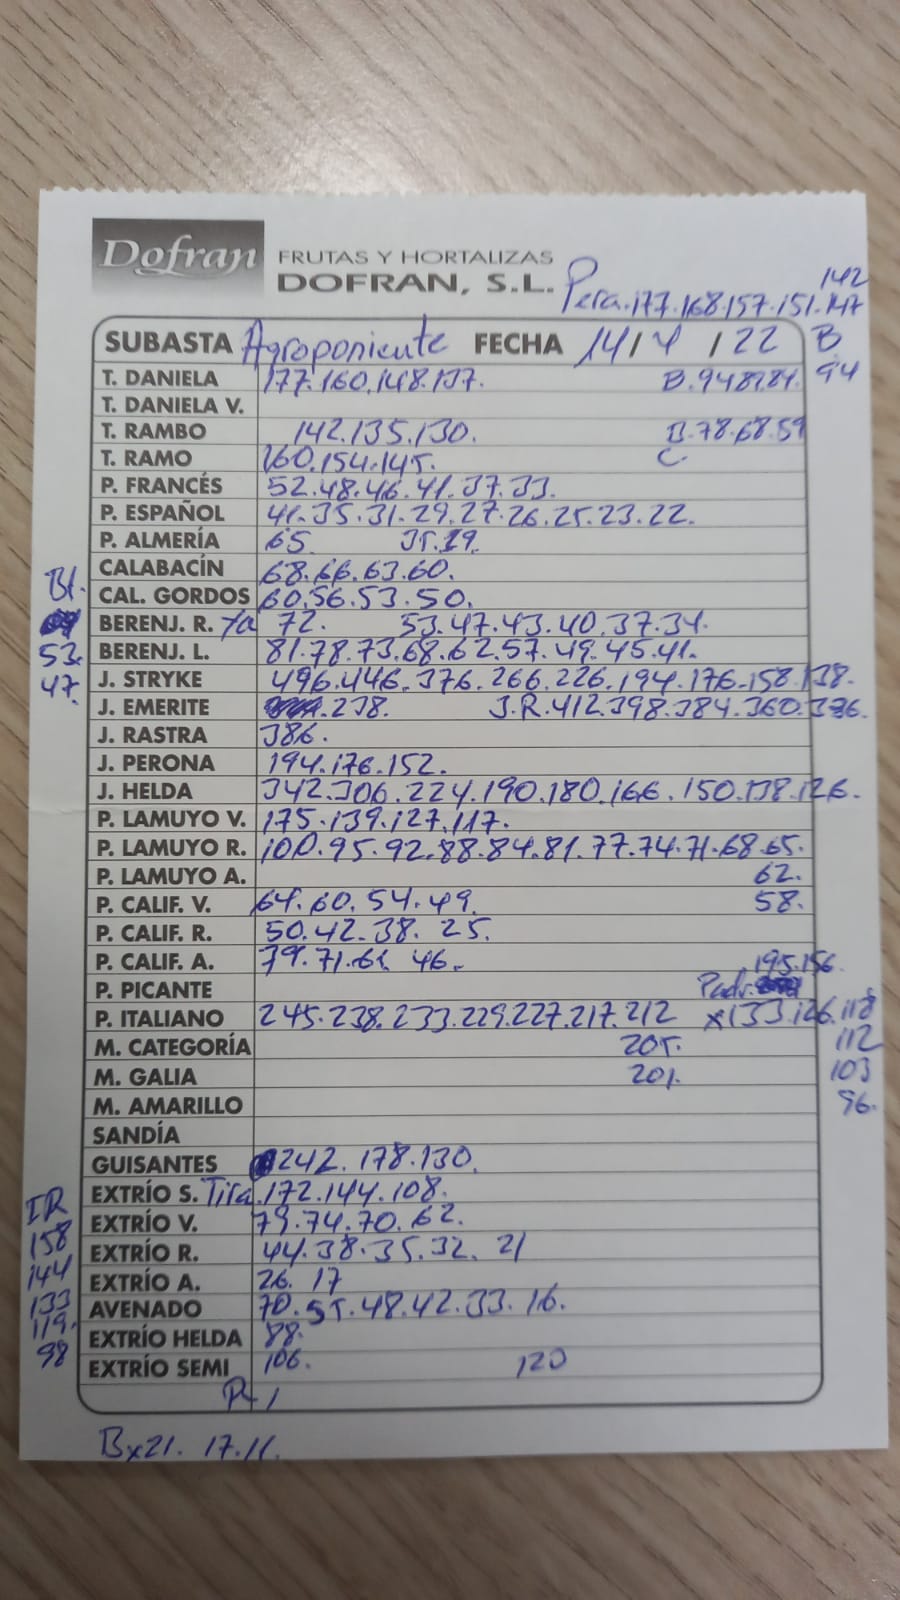 Dofran FRUTAS Y HORTALIZAS
DOFRAN, S.L. Pera.177.168.157.151.147
142
SUBASTA Agroponiente FECHA 14/4/22 B
94
T. DANIELA 177.160.148.137. B.94
T. DANIELA V.
T. RAMBO 142.135.130. B.78.68.59
T. RAMO 160.154.145. C.
P. FRANCÉS 52.48.46.41.37.33.
P. ESPAÑOL 41.35.31.29.27.26.25.23.22.
P. ALMERÍA 65
CALABACÍN 68.66.63.60.
CAL. GORDOS 60.56.53.50.
BERENJ. R. Ya 72. 53.47.43.40.37.34.
BERENJ. L. 81.78.73.68.62.57.49.45.41.
Bl.
53.
47.
J. STRYKE 496.446.376.266.226.194.176.158.138.
J. EMERITE 238. J.R.412.398.384.360.
J. RASTRA 386.
J. PERONA 194.176.152.
J. HELDA 342.306.224.190.180.166.150.138.126.
P. LAMUYO V. 175.139.127.117.
P. LAMUYO R. 100.95.92.88.84.81.77.74.71.68.65.
P. LAMUYO A. 62.
P. CALIF. V. 64.60.54.49. 58.
P. CALIF. R. 50.42.38. 25.
P. CALIF. A. 79.71.61. 46. 195.156.
P. PICANTE Padr.
P. ITALIANO 245.238.233.229.227.217.212 x133.126.118
M. CATEGORÍA 205. 112
M. GALIA 201. 103
M. AMARILLO 96.
SANDÍA
GUISANTES 242.178.130.
EXTRÍO S. Tira.172.144.108.
EXTRÍO V. 79.74.70.62.
EXTRÍO R. 44.38.35.32. 21
EXTRÍO A. 26. 17
AVENADO 70.55.48.42.33.16.
EXTRÍO HELDA 88.
EXTRÍO SEMI 106. 120
IR
158
144
133
119.
98
Bx21. 17.11.